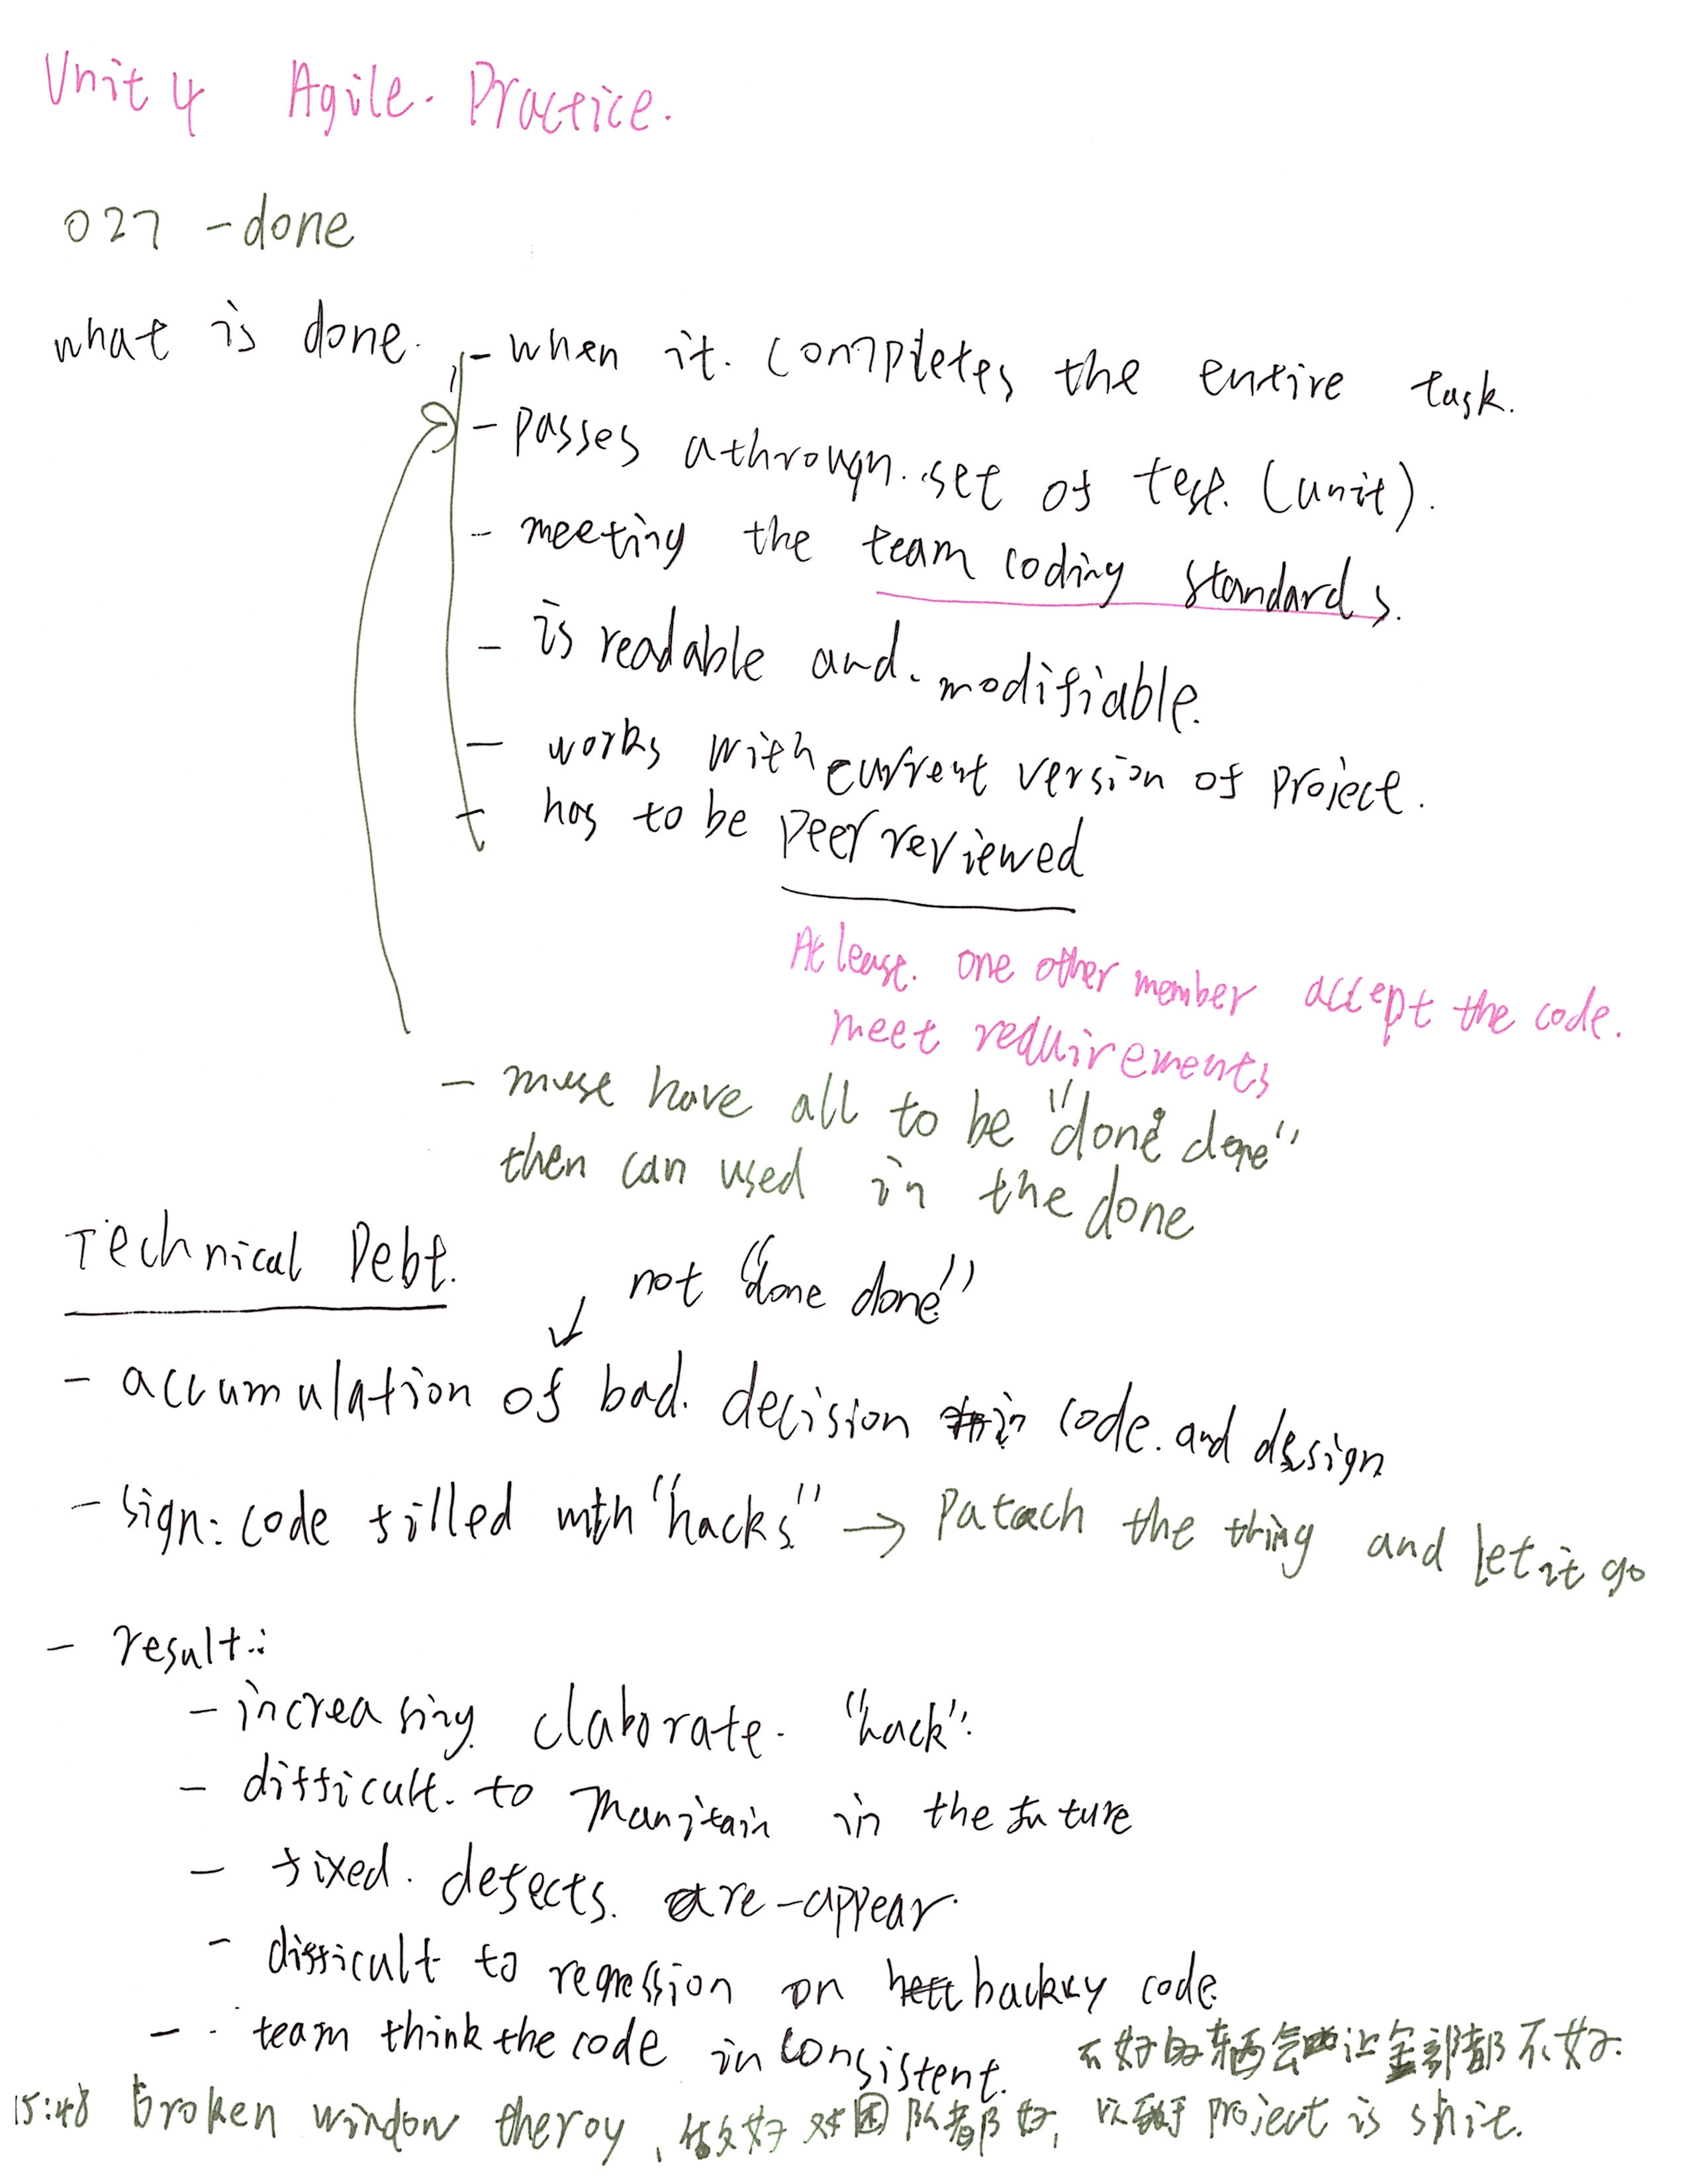 Unit 4 Agile. Practice.
027 - done
what is done. - when it. completes the entire task.
- passes a throuqn. set of test. (unit).
- meeting the team coding standards.
- is readable and. modifiable.
- works with current version of project.
- has to be peer reviewed
At least. one other member accept the code.
meet requirements
- must have all to be "done done"
then can used in the done
Technical Debt.
not "done done"
- accumulation of bad. decision in code. and design
- sign: code filled with "hacks" → Patach the thing and let it go
- result:
- increasing elaborate. "hack".
- difficult. to manitain in the future
- fixed. defects. re-appear.
- difficult to regression on hacky code
- team think the code inconsistent.
不好的东西会让全部都不好.
15:48 broken window theroy, 做好对团队都好, 以致于 project is shit.